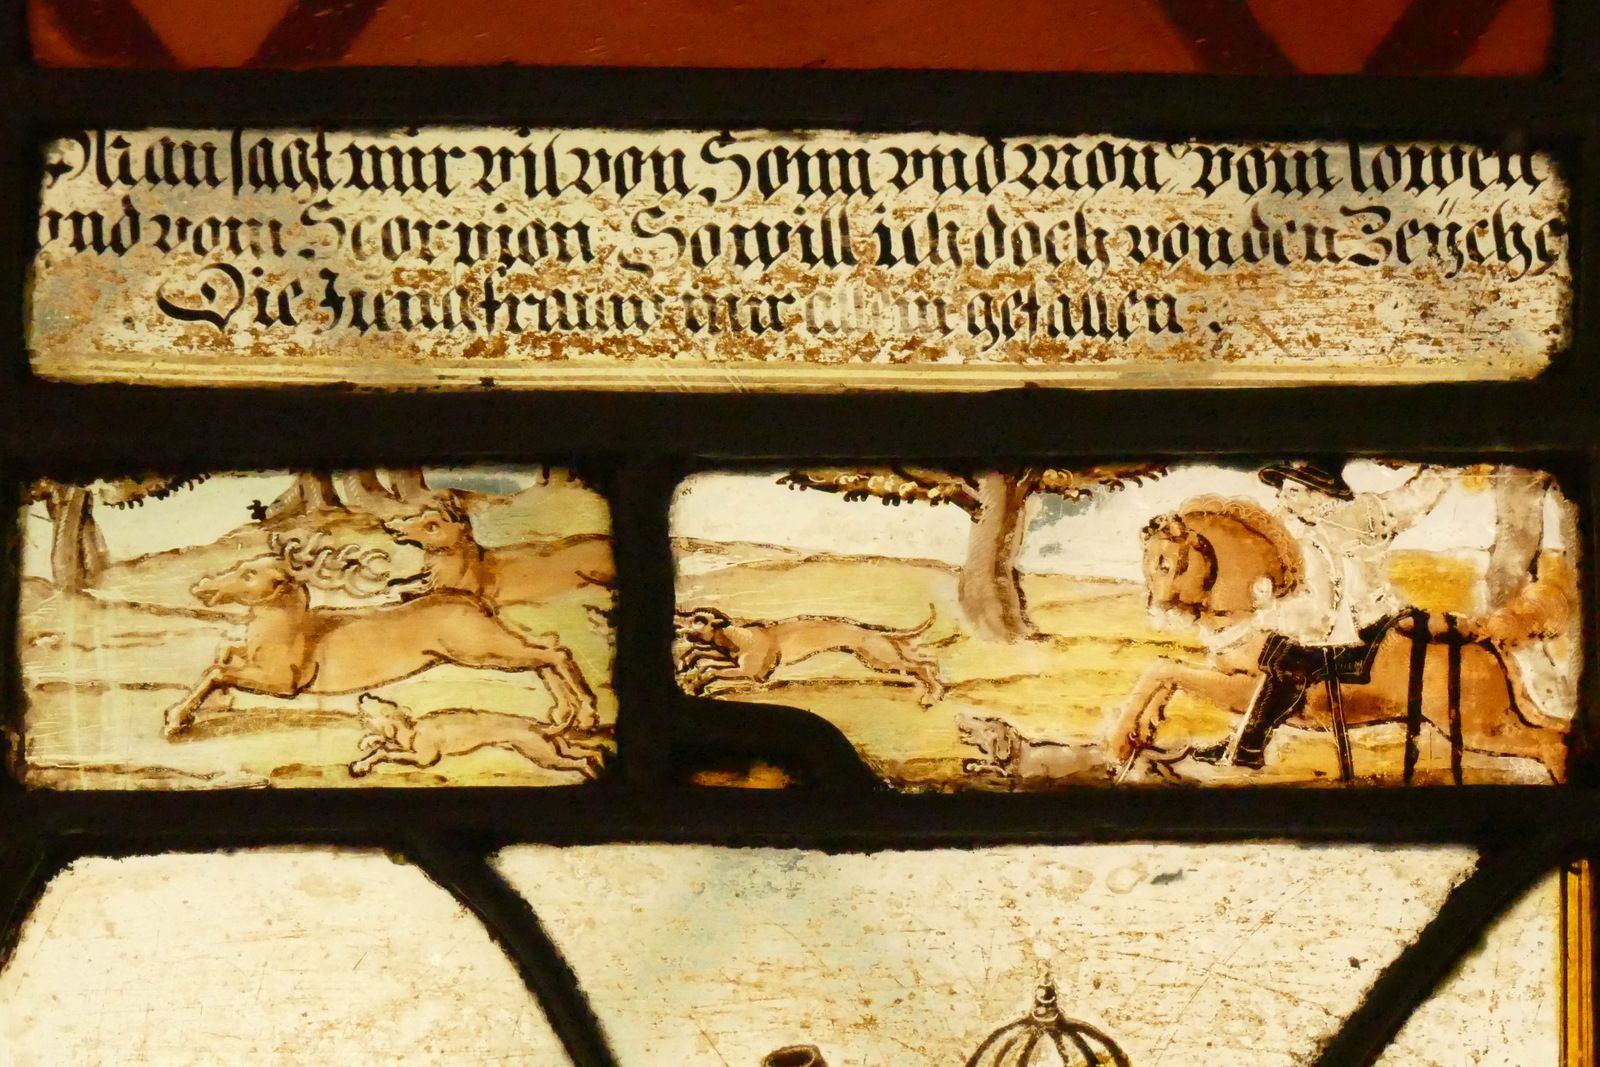 Man sagt mir vil von Sonn vnd Mon vom lowen
vnd vom Scorpion So will ich doch von den Zeÿche
Die Jungfrauw mir allein gefallen .